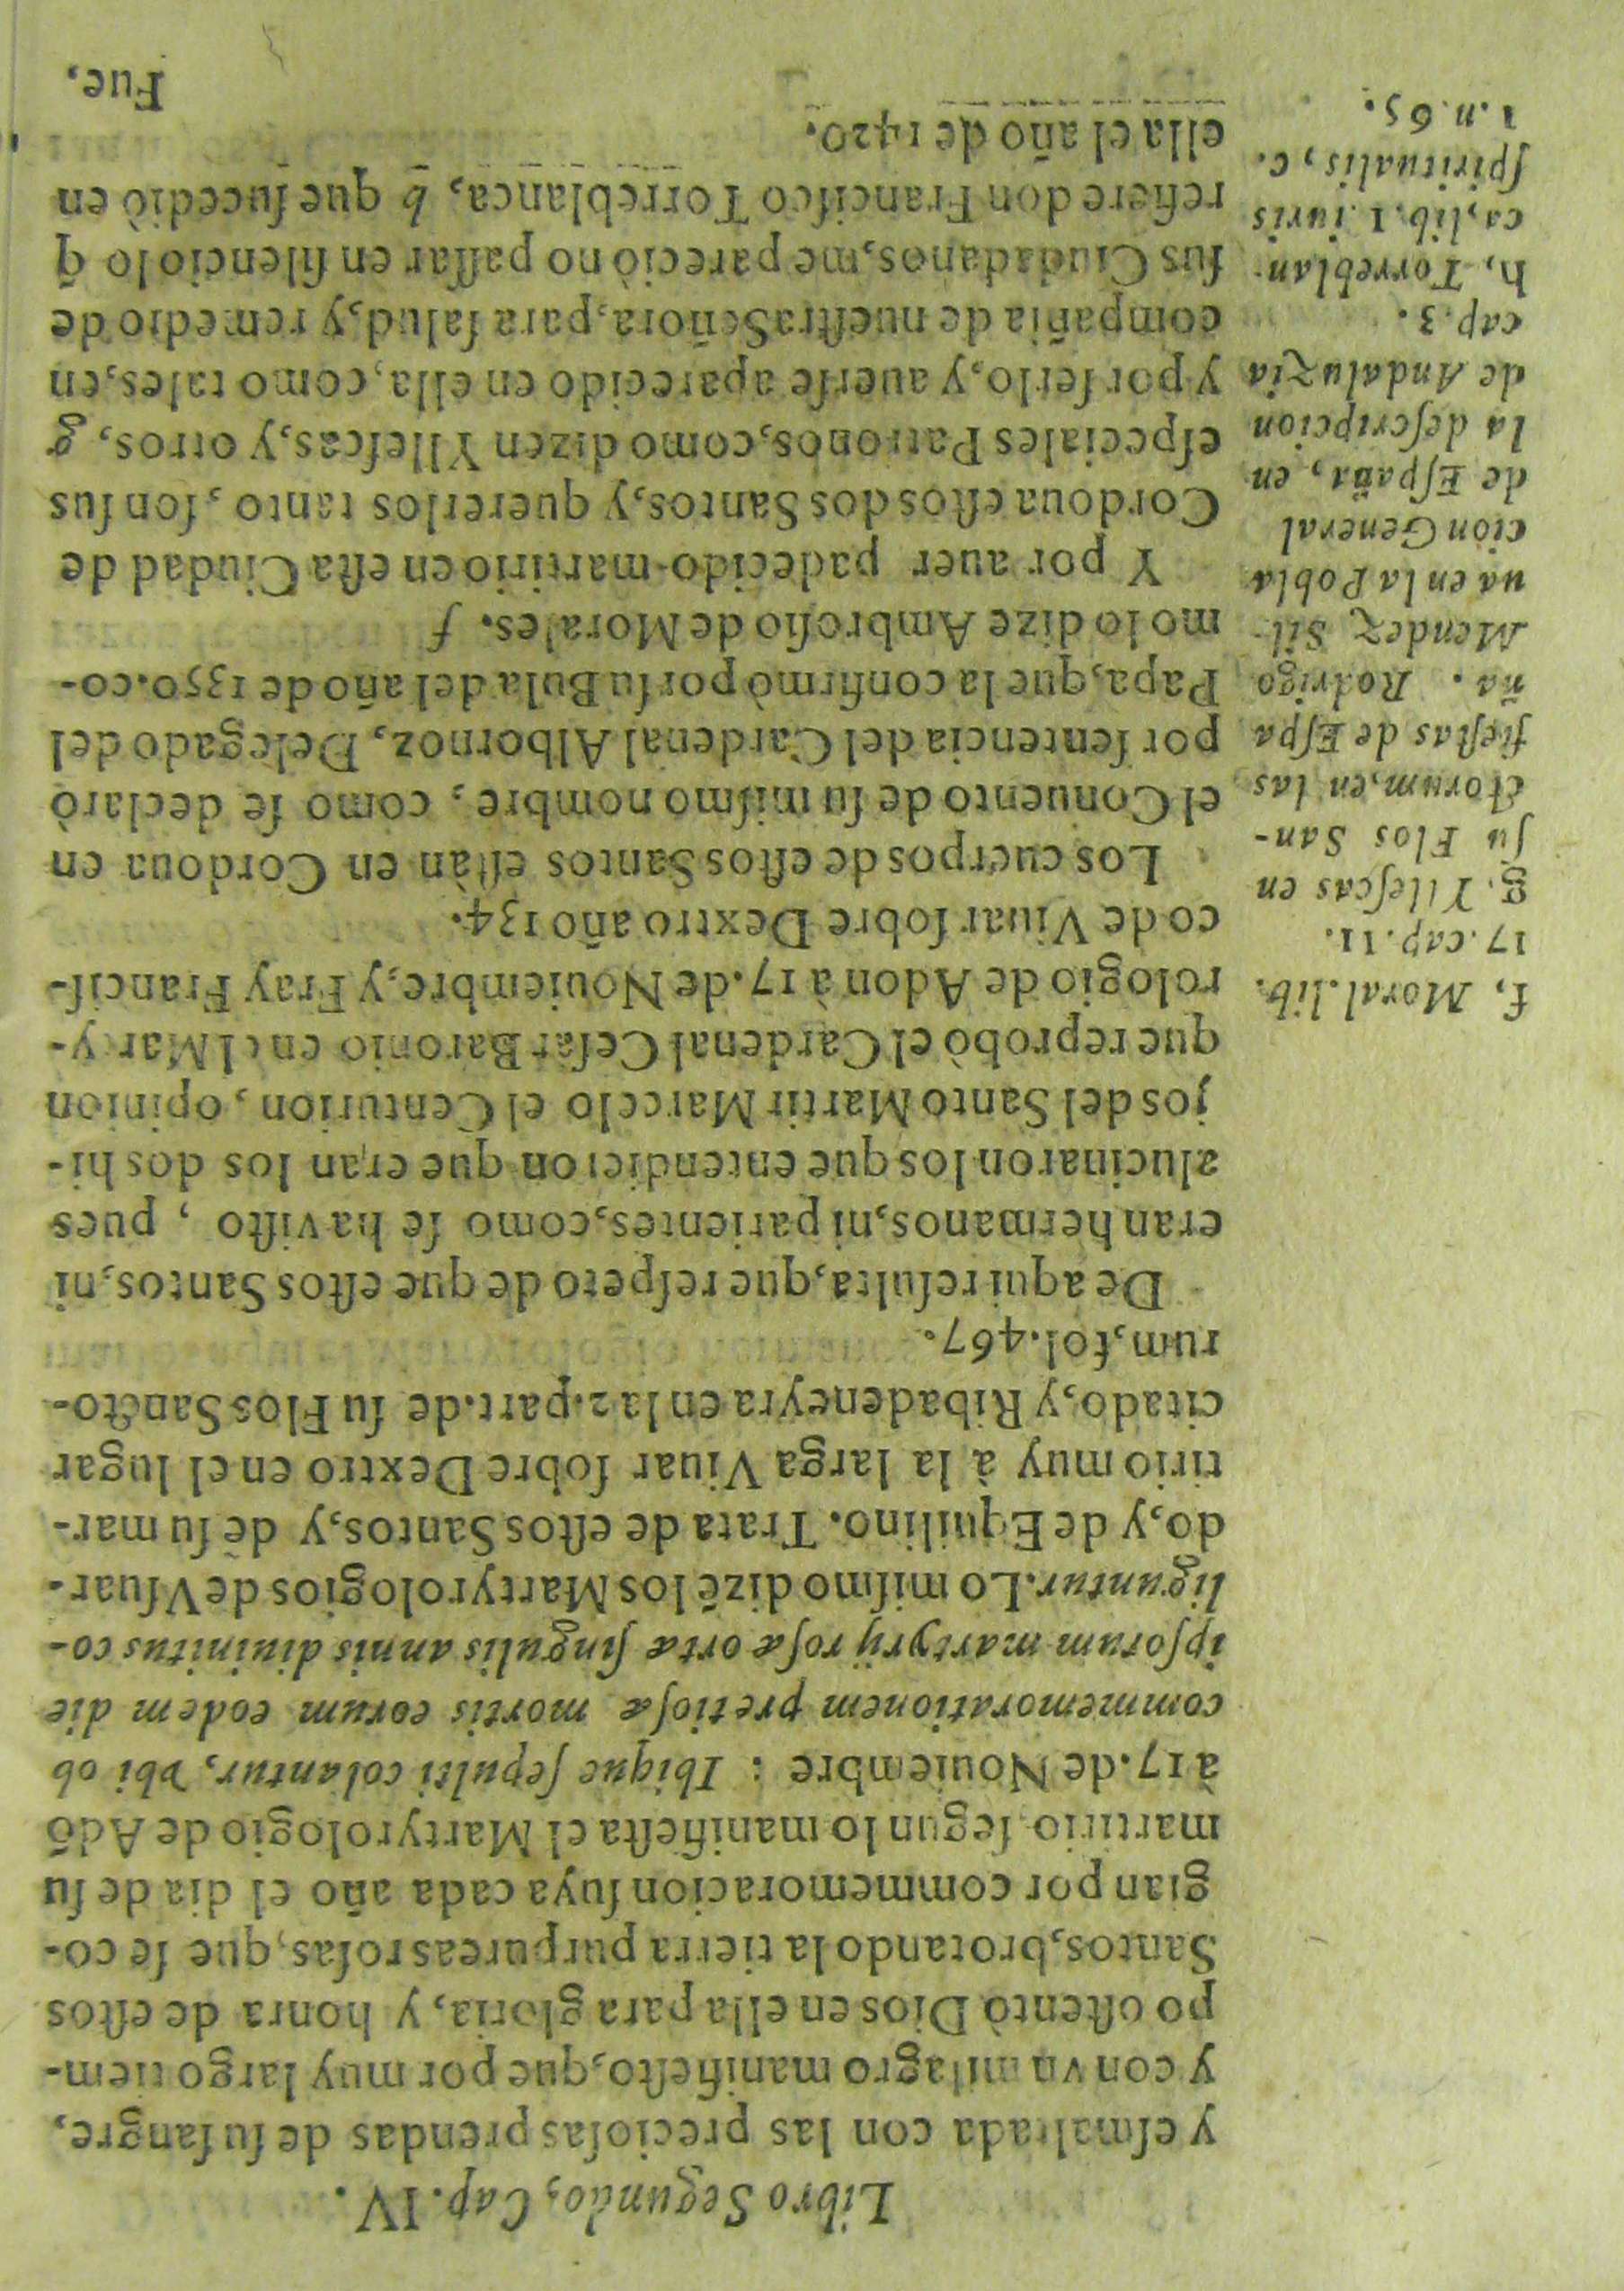 Libro Segundo, Cap. IV.
y esmaltada con las preciosas prendas de su sangre,
y con vn milagro manifiesto, que por muy largo tiem-
po ostentò Dios en ella para gloria, y honra de estos
Santos, brotando la tierra purpureas rosas, que se co-
gian por commemoracion suya cada año el dia de su
martirio, segun lo manifiesta el Martyrologio de Adõ
à 17. de Nouiembre : Ibique sepulti colantur, vbi ob
commemorationem pretiosæ mortis eorum eodem die
ipsorum martyrij rosæ ortæ singulis annis diuinitus co-
liguntur. Lo mismo dizẽ los Martyrologios de Vsuar-
do, y de Equilino. Trata de estos Santos, y de su mar-
tirio muy à la larga Viuar sobre Dextro en el lugar
citado, y Ribadeneyra en la 2. part. de su Flos Sancto-
rum, fol. 467.
De aqui resulta, que respeto de que estos Santos, ni
eran hermanos, ni parientes, como se ha visto , pues
alucinaron los que entendieron que eran los dos hi-
jos del Santo Martir Marcelo el Centurion, opinion
que reprobò el Cardenal Cesar Baronio en el Marty-
rologio de Adon à 17. de Nouiembre, y Fray Francis-
co de Viuar sobre Dextro año 134.
Los cuerpos de estos Santos estàn en Cordoua en
el Conuento de su mismo nombre , como se declarò
por sentencia del Cardenal Albornoz, Delegado del
Papa, que la confirmò por su Bula del año de 1350. co-
mo lo dize Ambrosio de Morales. f
Y por auer padecido martirio en esta Ciudad de
Cordoua estos dos Santos, y quererlos tanto , son sus
especiales Patronos, como dizen Yllescas, y otros, g
y por serlo, y auerse aparecido en ella, como tales, en
compañia de nuestra Señora, para salud, y remedio de
sus Ciudadanos, me pareciò no passar en silencio lo q̃
refiere don Francisco Torreblanca, h que sucediò en
ella el año de 1420.
Fue,
f, Moral. lib.
17. cap. 11.
g. Yllescas en
su Flos San-
ctorum, en las
fiestas de Espa
ña. Rodrigo
Mendez Sil-
ua en la Pobla
cion General
de España, en
la descripcion
de Andaluzia
cap. 3.
h, Torreblan-
ca, lib. 1 iuris
spiritualis, c.
1. n. 65.